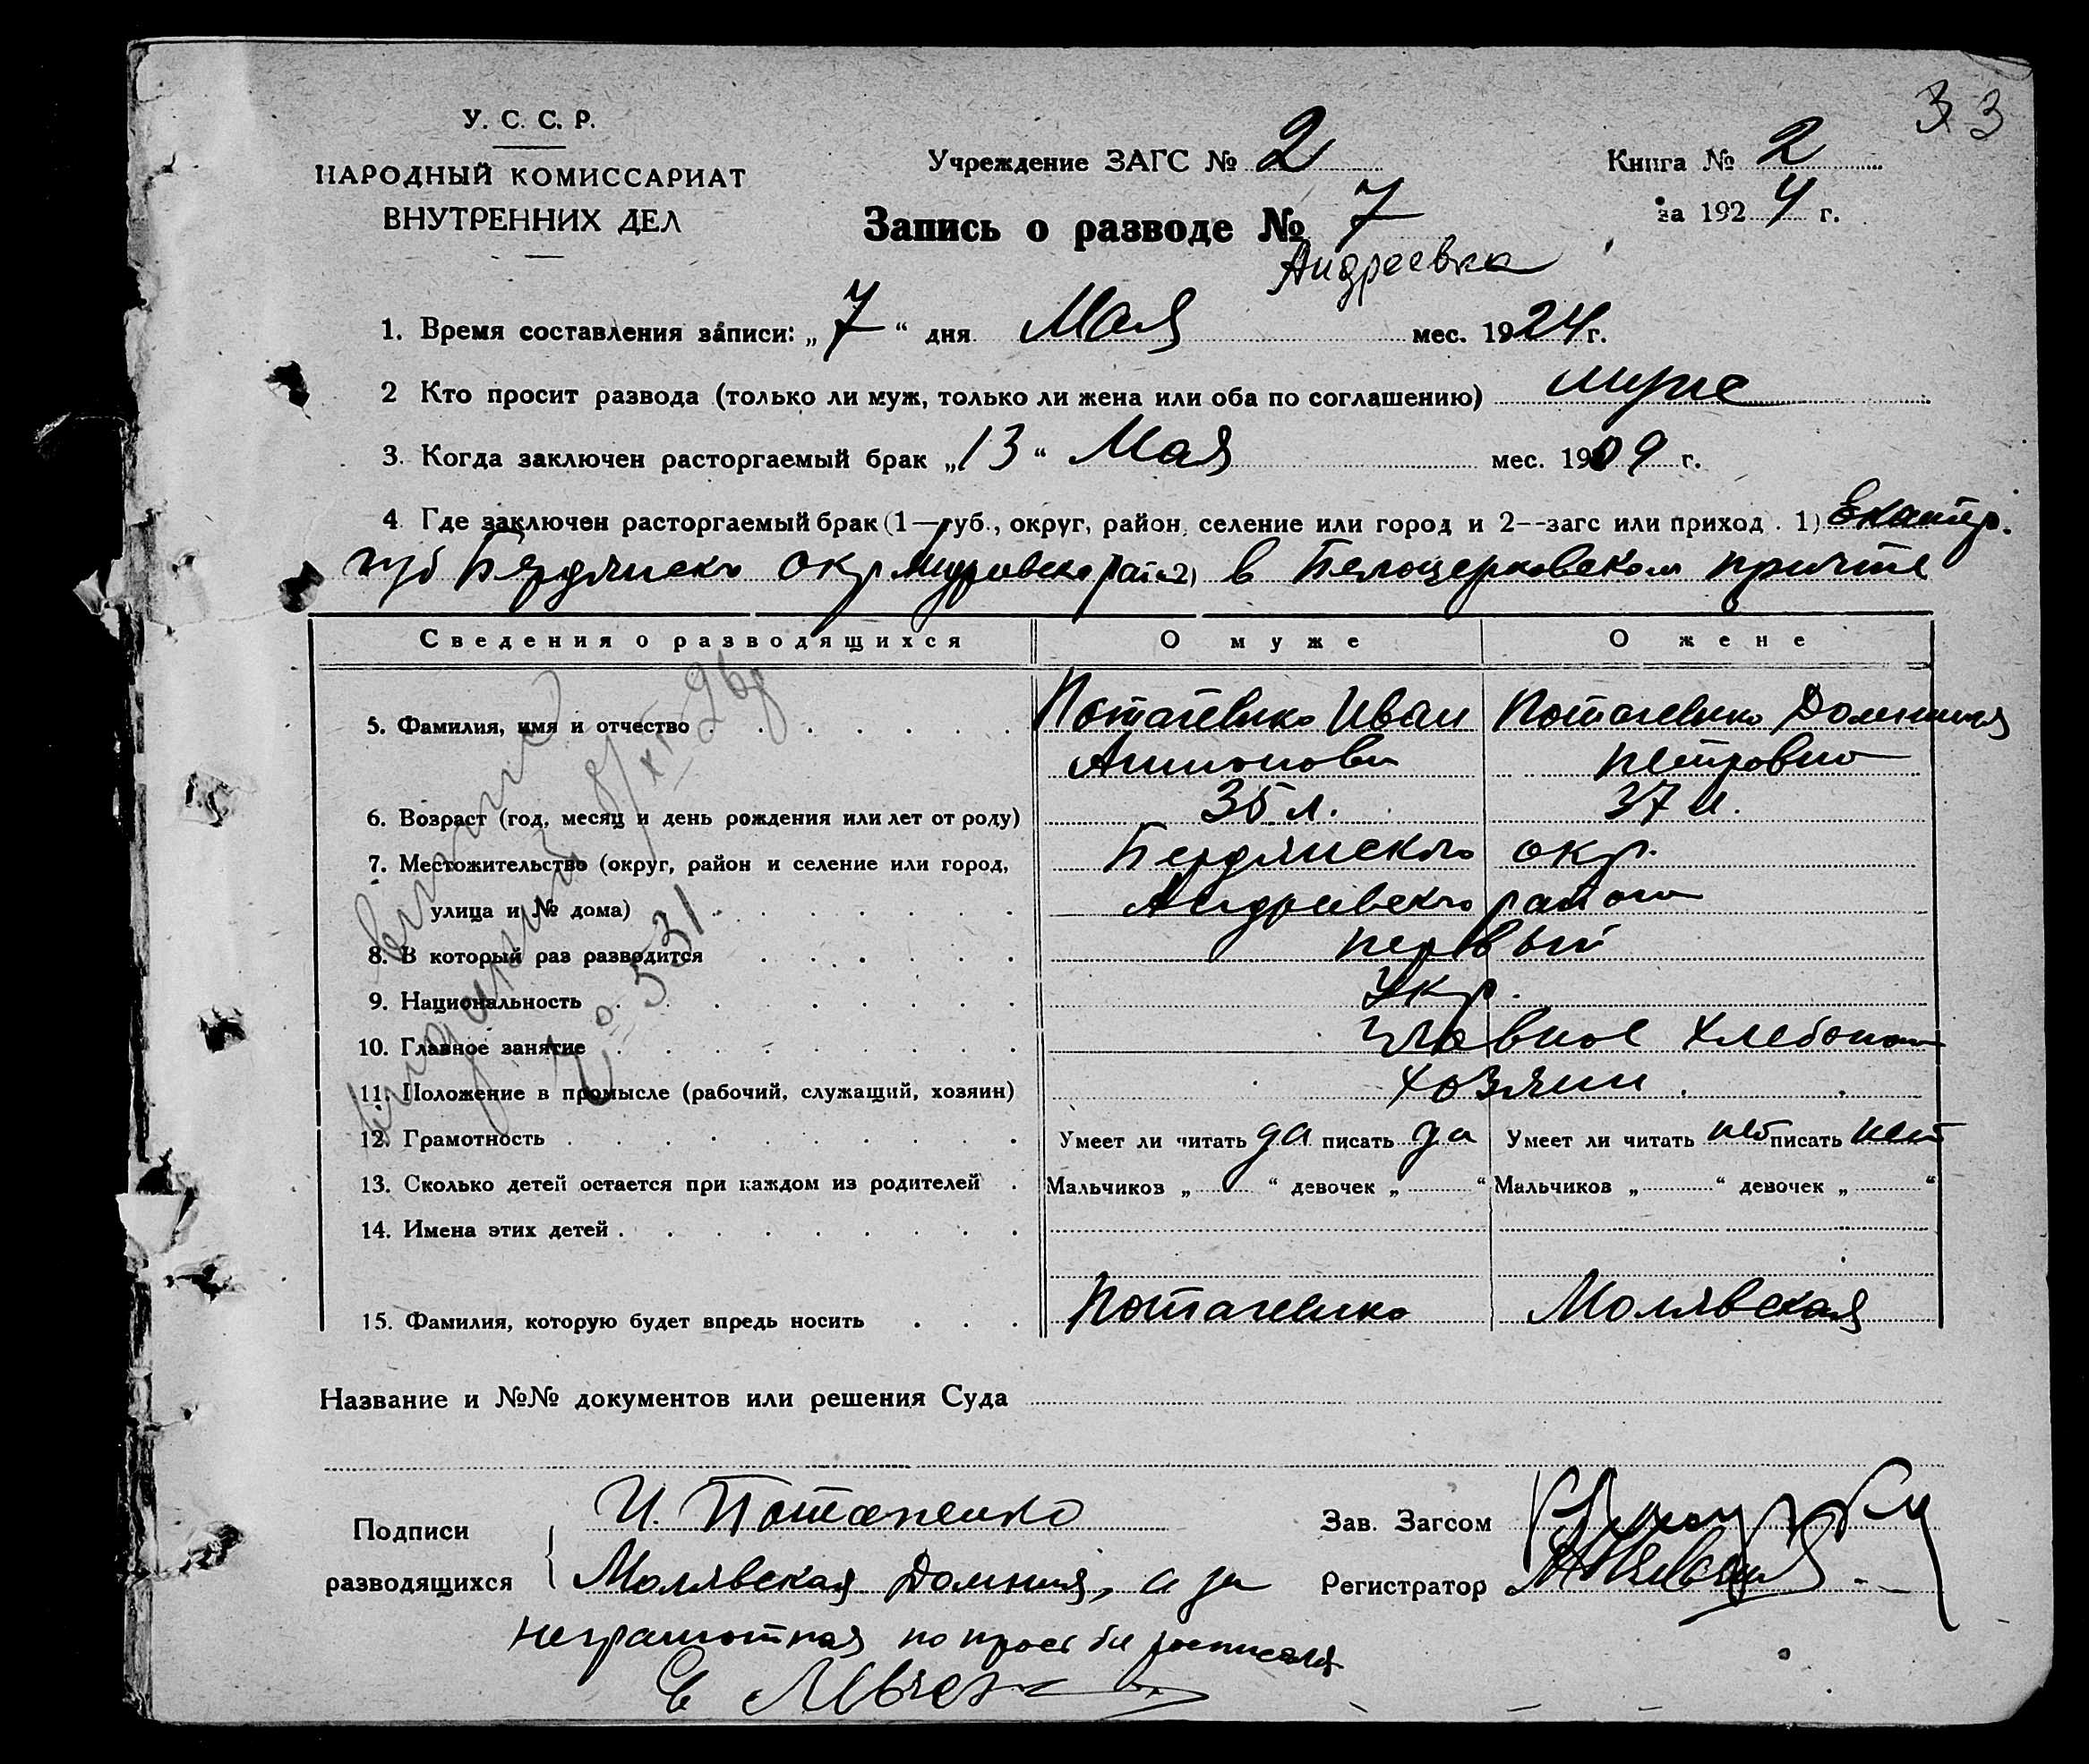 33
У. С. С. Р.
НАРОДНЫЙ КОМИССАРИАТ
ВНУТРЕННИХ ДЕЛ
Учреждение ЗАГС № 2
Книга № 2
за 1924 г.
Запись о разводе № 7
Андреевка
1. Время составления записи: „7“ дня Мая мес. 1924 г.
2 Кто просит развода (только ли муж, только ли жена или оба по соглашению) муже
3. Когда заключен расторгаемый брак „13“ Мая мес. 1909 г.
4. Где заключен расторгаемый брак (1—губ., округ, район, селение или город и 2--загс или приход. 1) Екатер.
губ Бердянско окр Андреевско рай 2) в Белоцерковском причте
Сведения о разводящихся О муже О жене
5. Фамилия, имя и отчество Потапенко Иван Потапенко Домникия
Петровно
6. Возраст (год, месяц и день рождения или лет от роду) 35 л. 37 л.
7. Местожительство (округ, район и селение или город, Бердянского окр.
улица и № дома) Андреевского района
8. В который раз разводится первый
9. Национальность Укр.
10. Главное занятие главное хлебопаш
11. Положение в промысле (рабочий, служащий, хозяин) хозяин
12. Грамотность Умеет ли читать да писать да Умеет ли читать нет писать нет
13. Сколько детей остается при каждом из родителей Мальчиков „ “ девочек „ “ Мальчиков „ “ девочек „ “
14. Имена этих детей
15. Фамилия, которую будет впредь носить Потапенко Молявская
№ 531
Название и №№ документов или решения Суда
Подписи
разводящихся
И. Потапенко
Молявская Домния, а за
неграмотная по просьбе росписался
Зав. Загсом
Регистратор